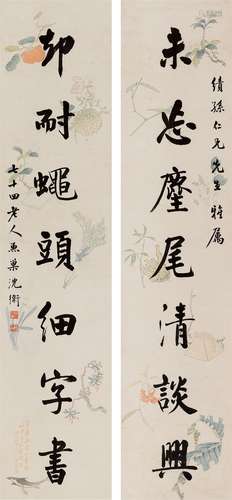 績孫仁兄先生雅屬
未忘麈尾清談興
却耐蠅頭細字書
七十四老人魚巢沈衛